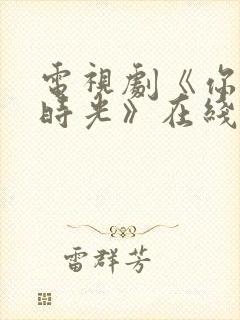 電視劇《你
時光》在綫
雷群芳